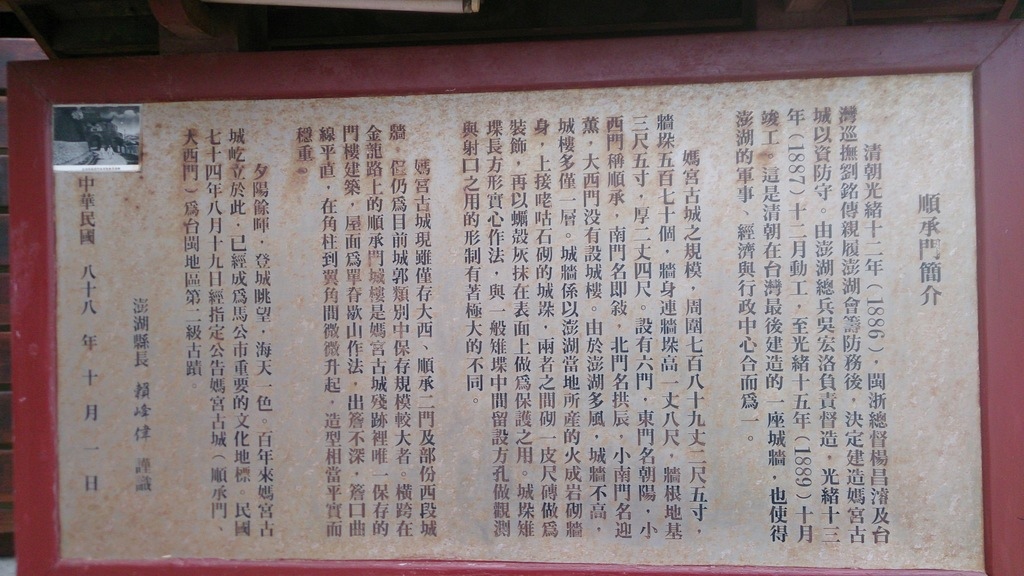 順承門簡介
清朝光緒十二年(1886)，閩浙總督楊昌濬及台
灣巡撫劉銘傳親履澎湖會籌防務後，決定建造媽宮古
城以資防守。由澎湖總兵吳宏洛負責督造，光緒十三
年(1887)十二月動工，至光緒十五年(1889)十月
竣工。這是清朝在台灣最後建造的一座城牆，也使得
澎湖的軍事、經濟與行政中心合而為一。
媽宮古城之規模，周圍七百八十九丈二尺五寸，
牆垛五百七十個，牆身連牆垛高一丈八尺，牆根地基
三尺五寸，厚二丈四尺。設有六門，東門名朝陽，小
西門稱順承，南門名即敍，北門名拱辰，小南門名迎
薰，大西門没有設城樓。由於澎湖多風，城牆不高，
城樓多僅一層。城牆係以澎湖當地所産的火成岩砌牆
身，上接咾咕石砌的城垛，兩者之間砌一皮尺磚做為
裝飾，再以蠣殼灰抹在表面上做為保護之用。城垛雉
堞長方形實心作法，與一般雉堞中間留設方孔做觀測
與射口之用的形制有著極大的不同。
媽宮古城現雖僅存大西、順承二門及部份西段城
牆，但仍為目前城郭類別中保存規模較大者。橫跨在
金龍路上的順承門城樓是媽宮古城殘跡裡唯一保存的
門樓建築，屋面為單脊歇山作法，出簷不深，簷口曲
線平直，在角柱到翼角間微微升起，造型相當平實而
穩重。
夕陽餘暉，登城眺望，海天一色。百年來媽宮古
城屹立於此，已經成為馬公市重要的文化地標。民國
七十四年八月十九日經指定公告媽宮古城（順承門、
大西門）為台閩地區第二級古蹟。
澎湖縣長 賴峰偉 謹識
中華民國 八十八 年 十 月 一 日